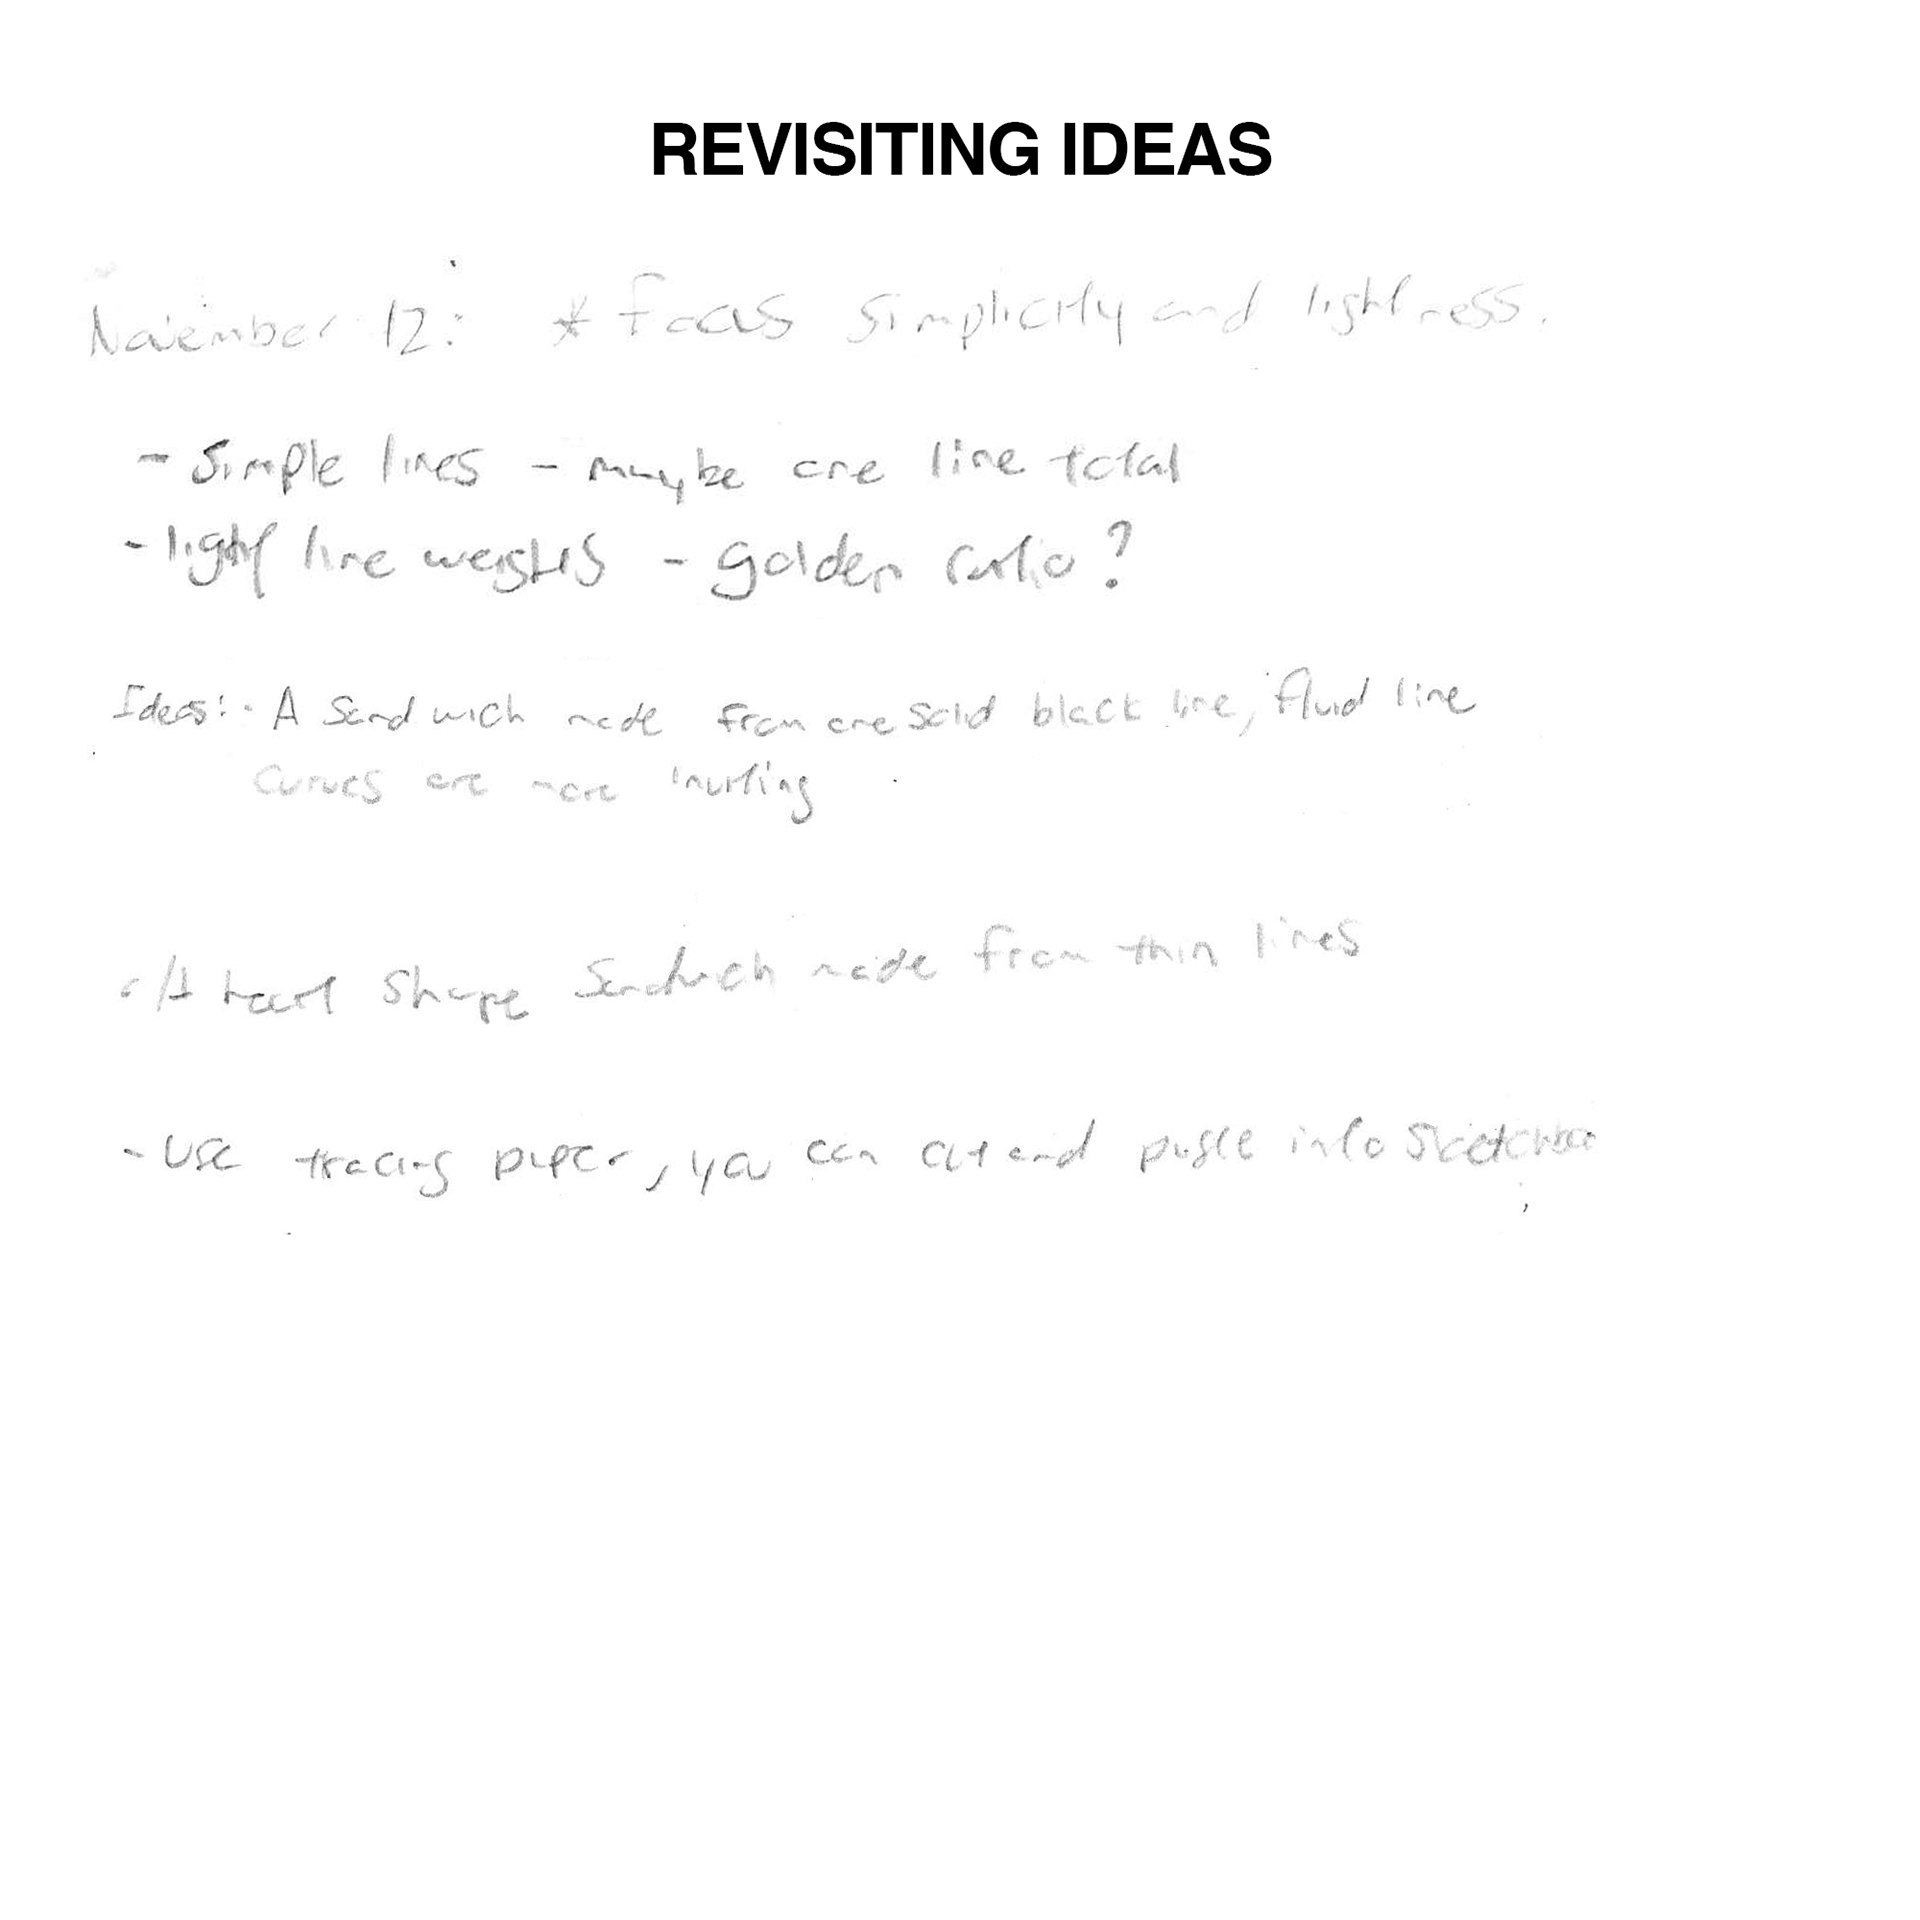 REVISITING IDEAS
November 12: * focus simplicity and lightness.
- simple lines - maybe one line total
- light line weights - golden ratio?
Ideas: - A Sandwich made from one solid black line, fluid line
curves are more inviting
- A heart shape Sandwich made from thin lines
- Use tracing paper, you can cut and paste into